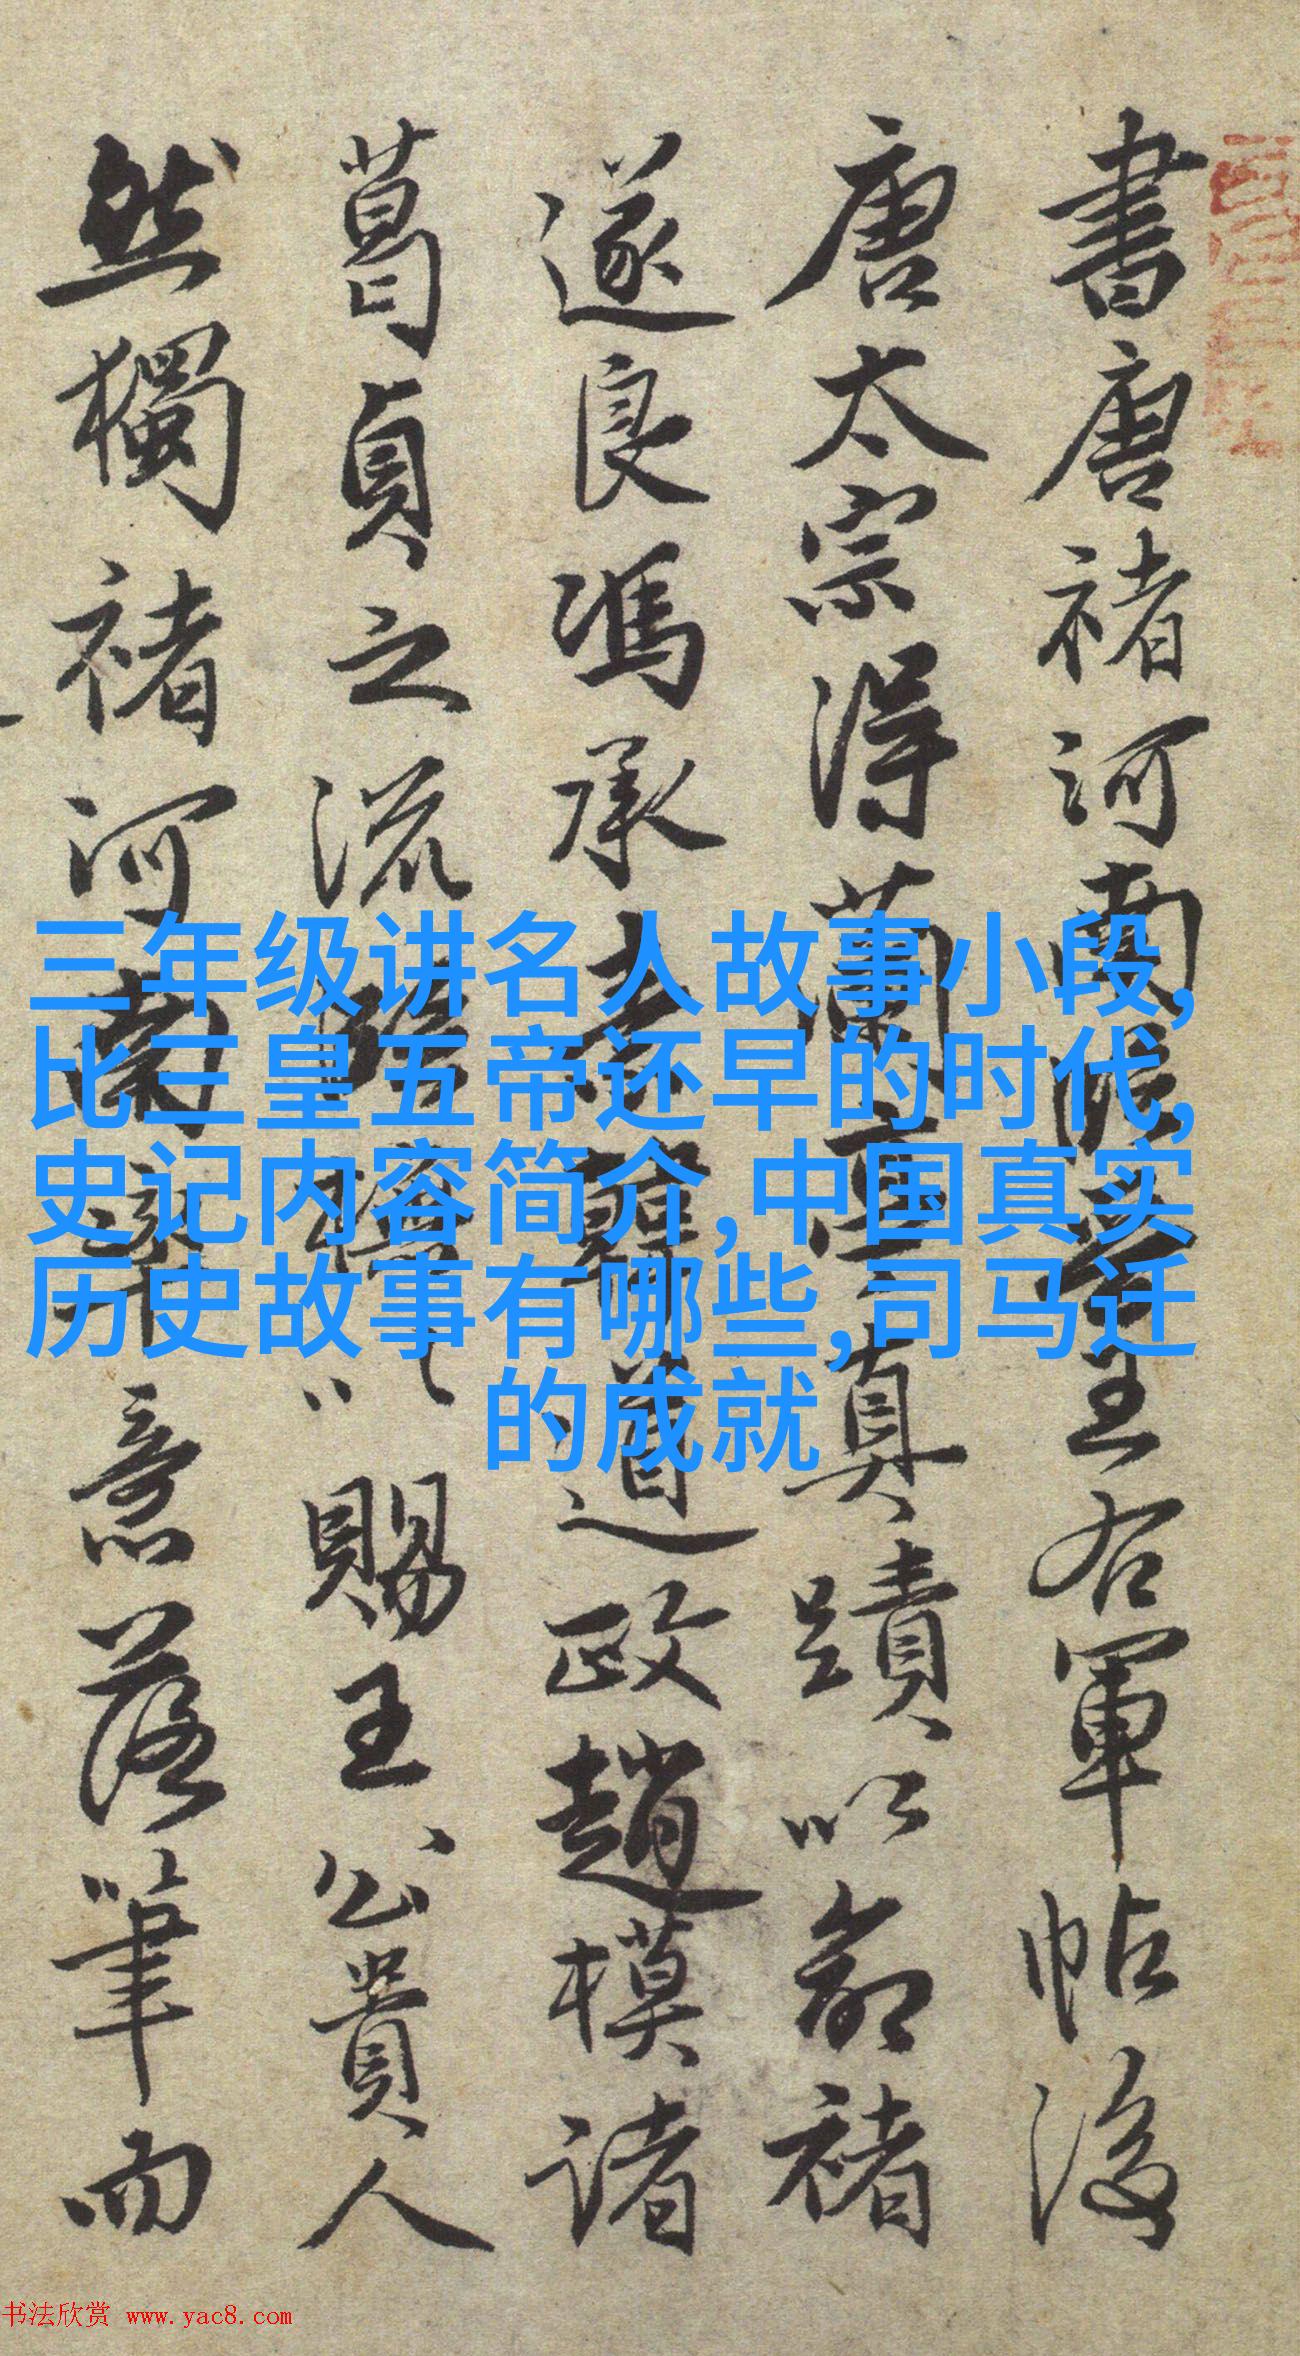 書唐褚河南臨王右軍帖後
唐太宗得蘭亭真蹟以命褚
遂良馮承素韓道政趙模諸
葛貞之流賜王公貴人
然獨褚河南意落筆而
三年级讲名人故事小段,
比三皇五帝还早的时代,
史记内容简介,中国真实
历史故事有哪些,司马迁
的成就
书法欣赏 www.yac8.com